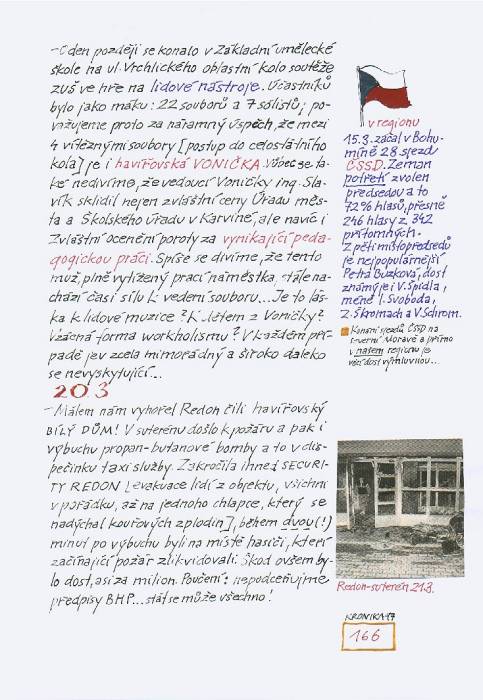 –O den později se konalo v Základní umělecké
škole na ul. Vrchlického oblastní kolo soutěže
zuš ve hře na lidové nástroje. Účastníků
bylo jako máku: 22 souborů a 7 sólistů; po-
važujeme proto za náramný úspěch, že mezi
4 vítěznými soubory [postup do celostátního
kola] je i havířovská VONIČKA. Vůbec se ta-
ké nedivíme, že vedoucí Voničky ing. Sla-
vík sklidil nejen zvláštní ceny Úřadu měs-
ta a Školského úřadu v Karviné, ale navíc i
Zvláštní ocenění poroty za vynikající peda-
gogickou práci. Spíše se divíme, že tento
muž, plně vytížený prací náměstka, stále na-
chází čas i sílu k vedení souboru... Je to lás-
ka k lidové muzice? K dětem z Voničky?
Vzácná forma workholismu? V každém pří-
padě jev zcela mimořádný a široko daleko
se nevyskytující...
20 3
–Málem nám vyhořel Redon čili havířovský
BÍLÝ DŮM! V suterénu došlo k požáru a pak i
výbuchu propan-butanové bomby a to v dis-
pečinku taxi služby. Zakročila ihned SECURI-
TY REDON [evakuace lidí z objektu, všichni
v pořádku, až na jednoho chlapce, který se
nadýchal kouřových zplodin], během dvou (!)
minut po výbuchu byli na místě hasiči, kteří
začínající požár zlikvidovali. Škod ovšem by-
lo dost, asi za milion. Poučení: nepodceňujme
předpisy BHP... stát se může všechno!
v regionu
15.3. začal v Bohu-
míně 28 sjezd
ČSSD. Zeman
potřetí zvolen
předsedou a to
72% hlasů, přesně
246 hlasy z 342
přítomných.
Z pěti místopředsedů
je nejpopulárnější
Petra Buzková, dost
známý je i V. Špidla,
méně I. Svoboda,
Z. Škromach a V. Schrom.
Konání sjezdů ČSSD na
severní Moravě a přímo
v našem regionu je
věcí dost výmluvnou...
Redon-suterén 21.3.
KRONIKA 97
166